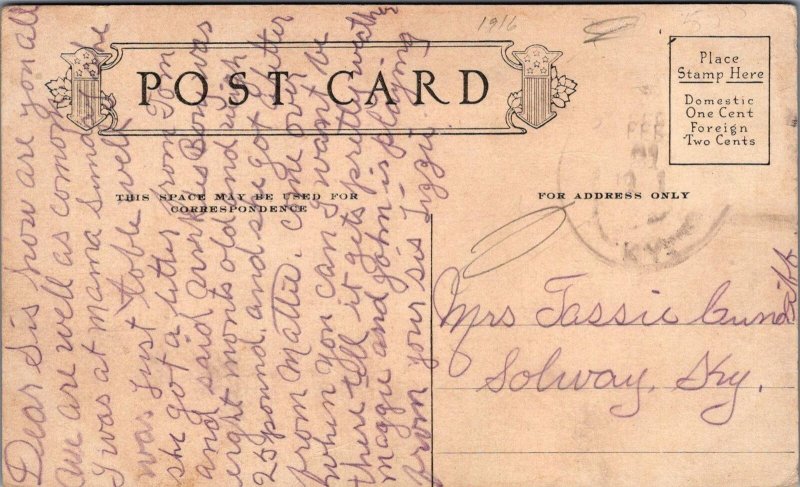 1916
POST CARD
Place
Stamp Here
Domestic
One Cent
Foreign
Two Cents
THIS SPACE MAY BE USED FOR
CORRESPONDENCE
FOR ADDRESS ONLY
KY
Dear Sis how are you all
we are well as comon
I was at mama Sunday she
was just toble well
she got a letter from Tom
and said Boy was
eight month old and wigh
25 pound, and she got letter
from Mattie. Come over
when you can I want be
there tell it gets pretty weather
maggie and John is playing
from your sis Lizzie
Mrs Tassie Cundiff
Solway, Ky.